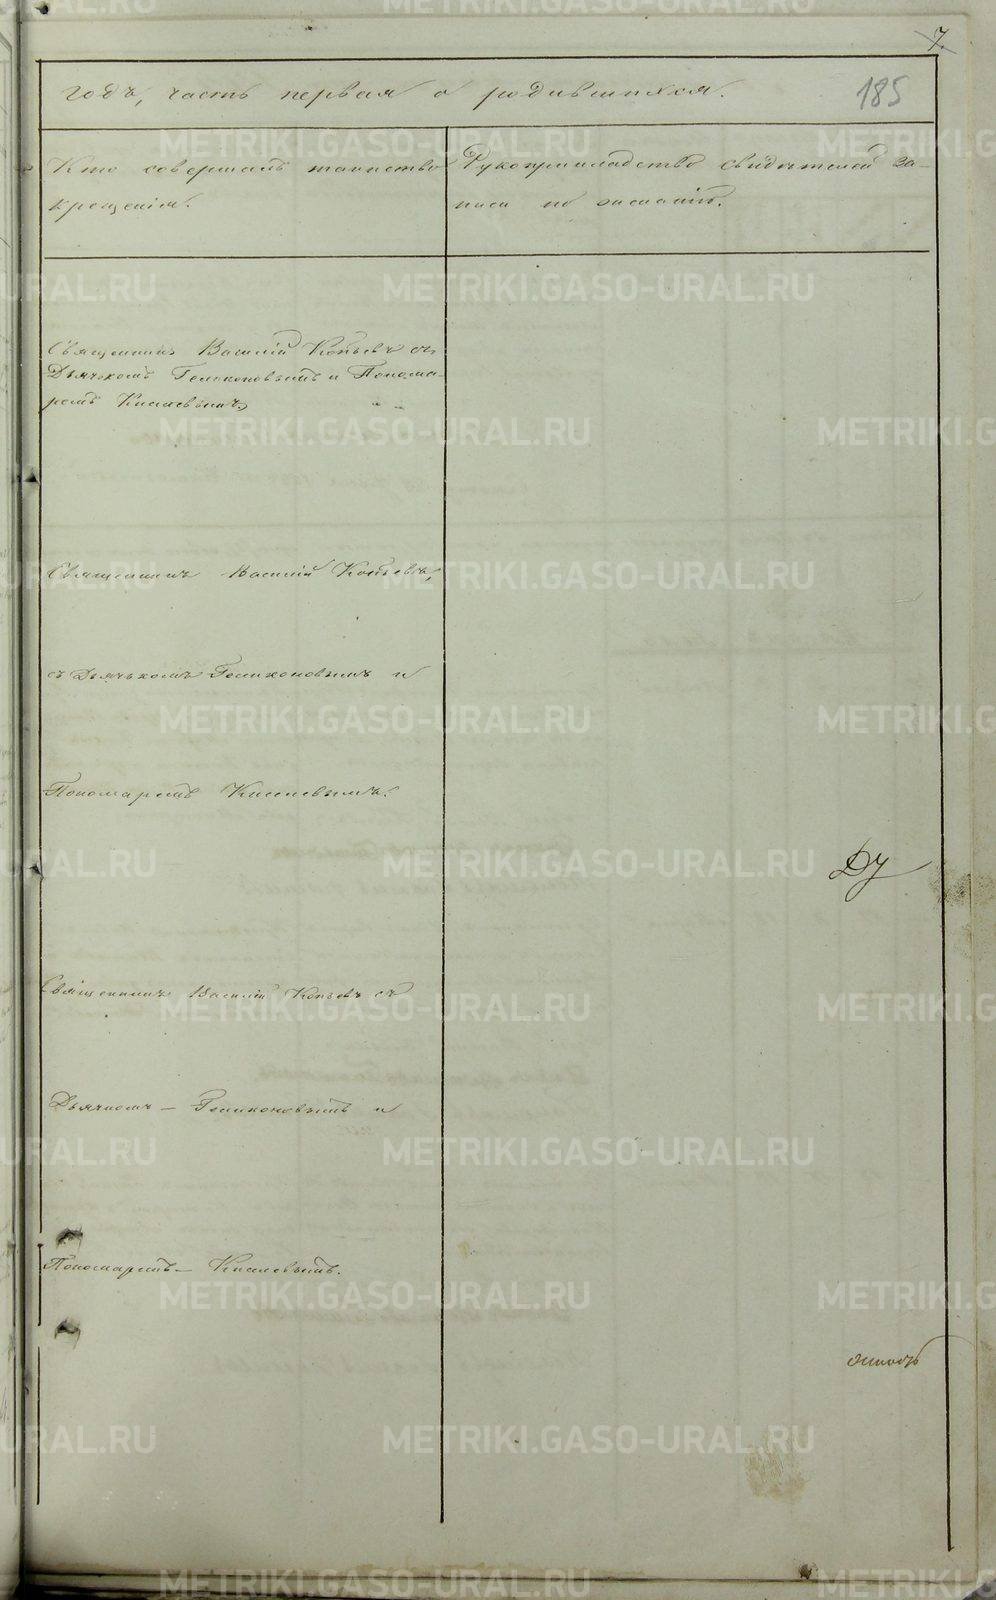 7.
185
годъ, часть первая о родившихся.
Кто совершалъ таинство
крещенія.
Рукоприкладство свидѣтелей за-
писи по желанію.
Священникъ Василій Копьевъ съ
Дьячкомъ Геликоновымъ и Понома-
ремъ Киселевымъ,
Священникъ Василій Копьевъ,
съ Дьячькомъ Геликоновымъ и
Пономаремъ Киселевымъ.
Священникъ Василій Копьевъ съ
Дьячкомъ – Геликоновымъ и
Пономаремъ – Киселевымъ.
Ду
METRIKI.GASO-URAL.RU